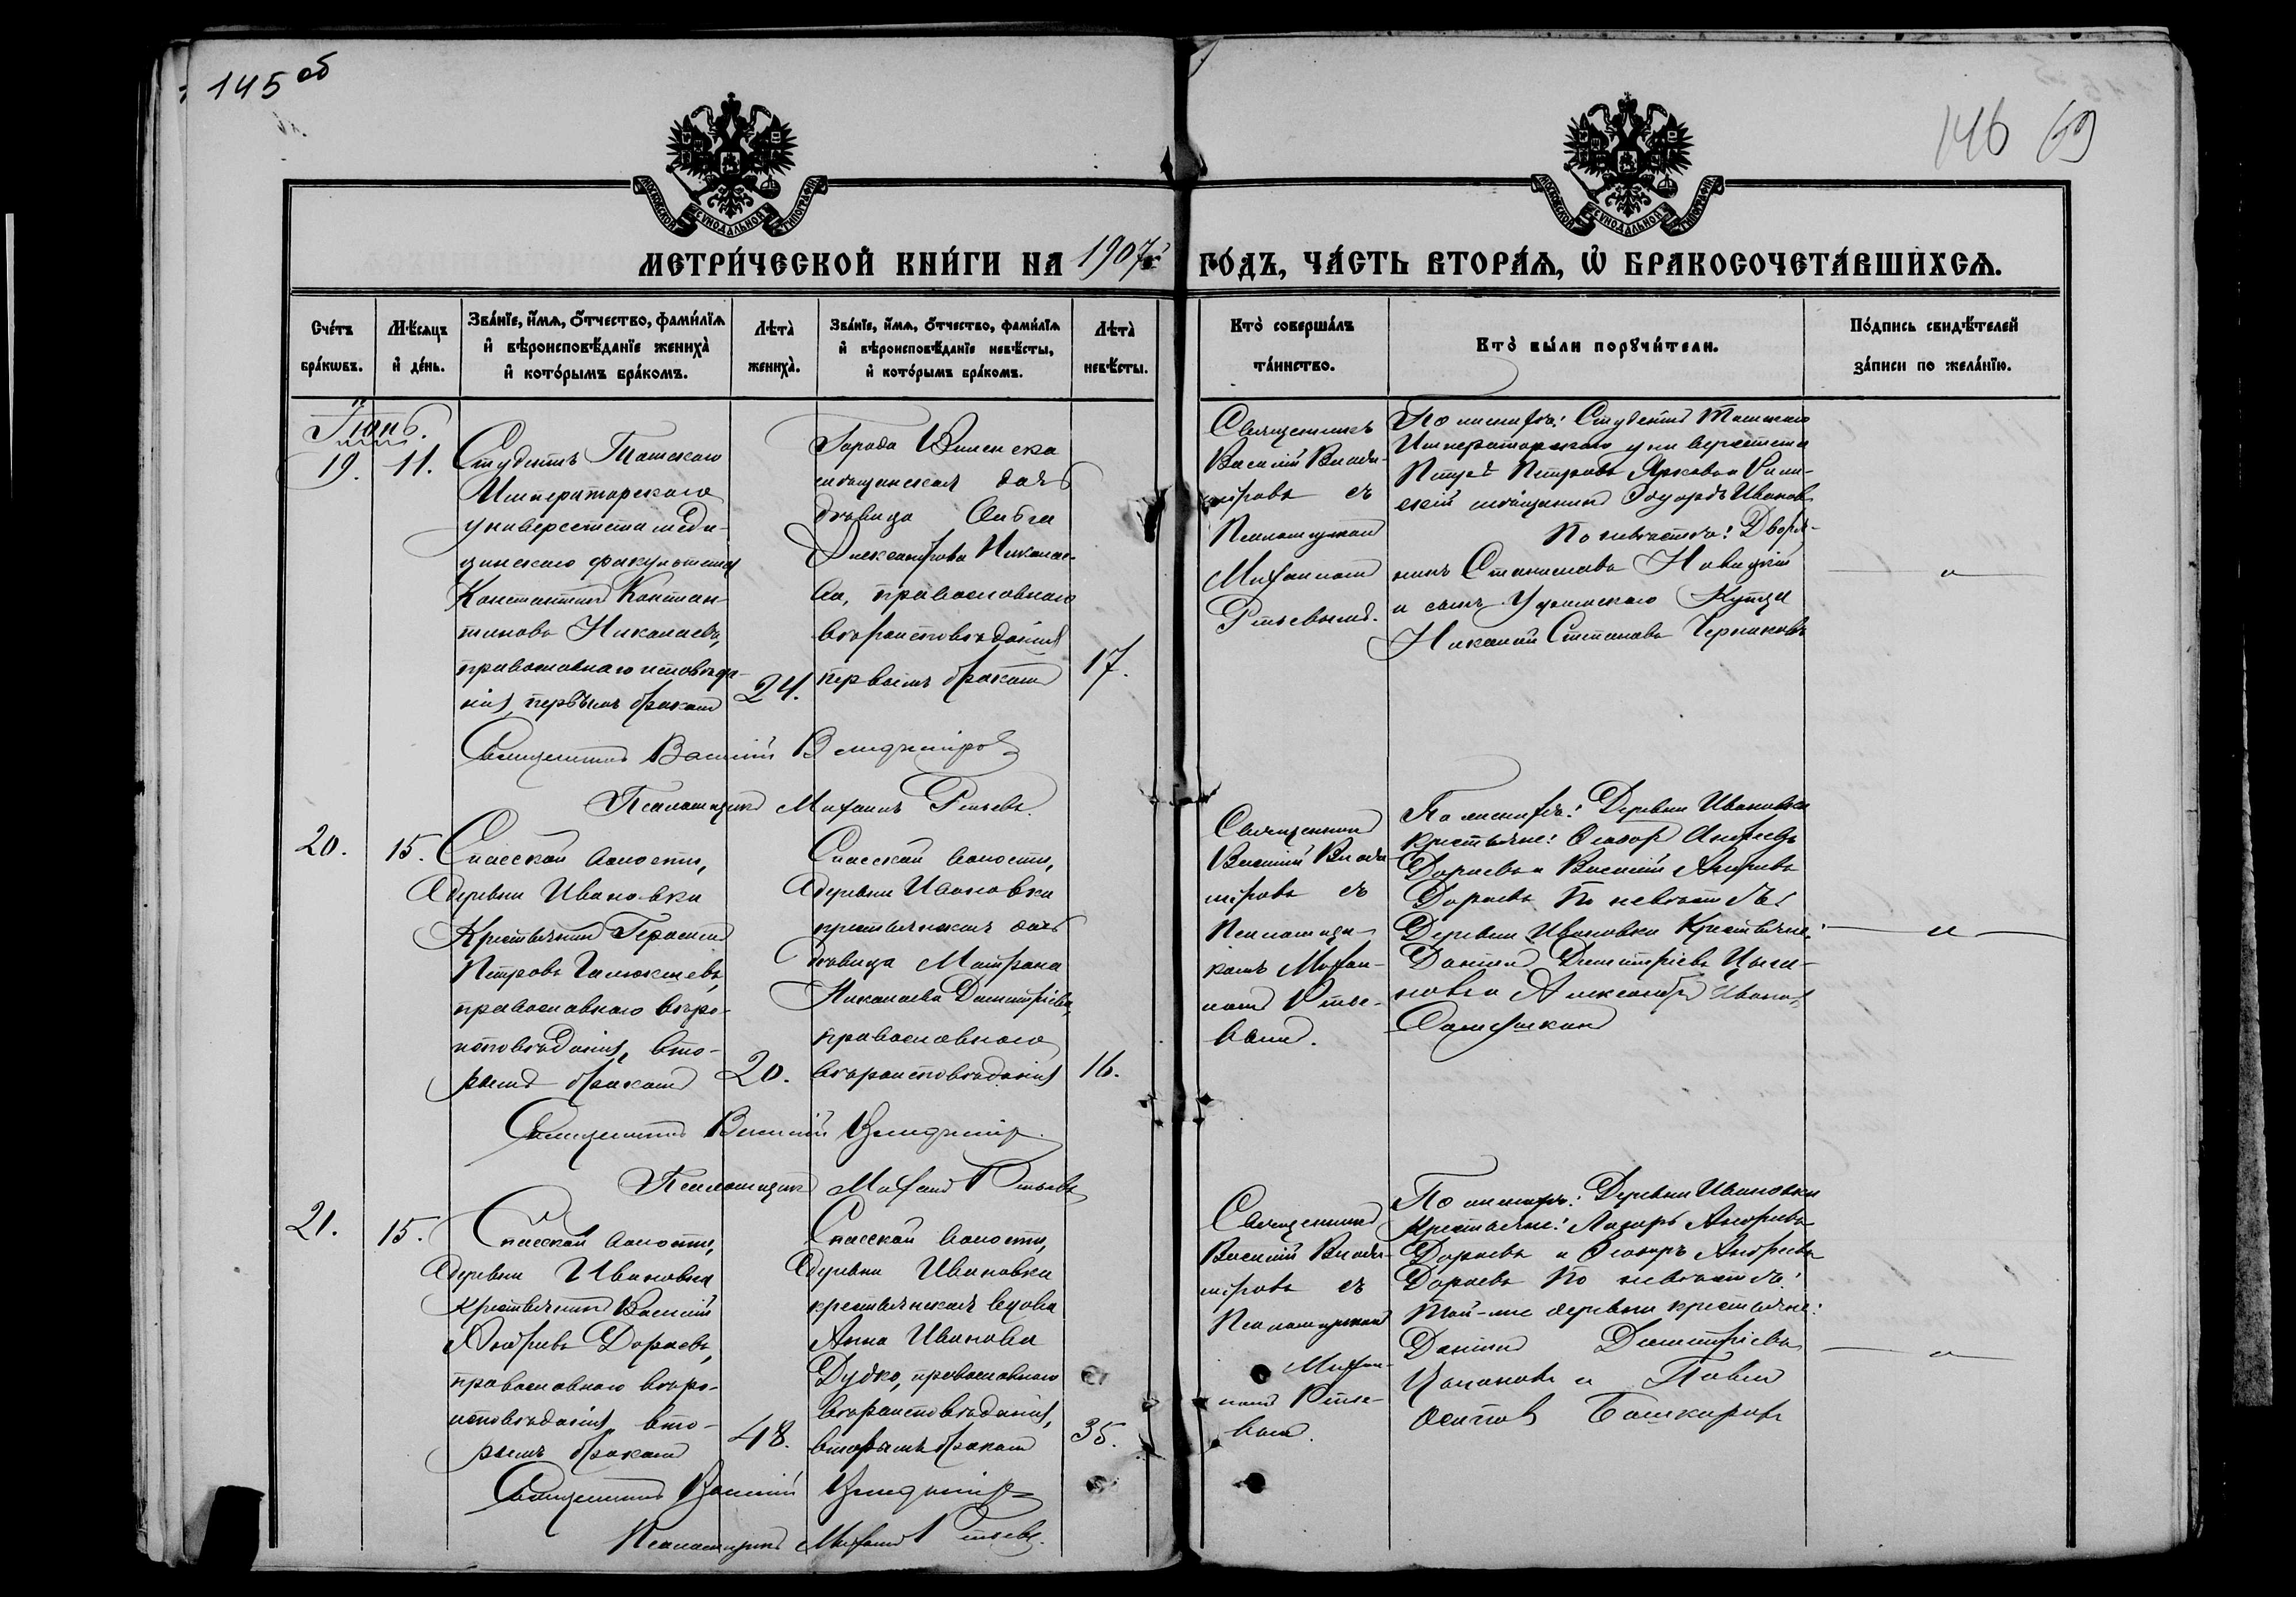 145 об
146 69
МОСКОВСКОЙ СѴНОДАЛЬНОЙ ТИПОГРАФІИ
МОСКОВСКОЙ СѴНОДАЛЬНОЙ ТИПОГРАФІИ
МЕТРИ́ЧЕСКОЙ КНИ́ГИ НА 1907й ГО́ДЪ, ЧА́СТЬ ВТОРА́Ѧ, Ѽ БРАКОСОЧЕТА́ВШИХСѦ.
Сче́тъ
бра́кѡвъ.
Мѣ́сѧцъ
и҆ де́нь.
Зва́нїе, и҆́мѧ, ѻ҆́тчество, фами́лїѧ
и҆ вѣроисповѣ́данїе жениха̀
и҆ кото́рымъ бра́комъ.
Лѣта̀
жениха̀.
Зва́нїе, и҆́мѧ, ѻ҆́тчество, фами́лїѧ
и҆ вѣроисповѣ́данїе невѣ́сты,
и҆ кото́рымъ бра́комъ.
Лѣта̀
невѣ́сты.
Кто̀ соверша́лъ
та́инство.
Кто̀ бы́ли порꙋчи́тели.
По́дпись свидѣ́телей
за́писи по жела́нїю.
Іюнь.
19.
11.
Студентъ Томскаго
Императорскаго
университета меди-
цинскаго факультета
Константинъ Констан-
тиновъ Николаевъ,
православнаго исповѣда-
нія, первымъ бракомъ
24.
Города
мѣщанская дочь
дѣвица Ольга
Александрова Николае-
ва, православнаго
вѣроисповѣданія
первымъ бракомъ
17.
Священникъ
Василій Влади-
міровъ съ
Псаломщикомъ
Михаиломъ
По женихѣ: Студентъ Томскаго
Императорскаго университета
Петръ Петровъ Ярковъ и
мѣщанинъ Эдуардъ Ивановъ
По невѣстѣ: Дворя-
нинъ Станиславъ Новицкій
и сынъ Уфимскаго Купца
Николай Степановъ Черниковъ
Священникъ Василій Владиміровъ
Псаломщикъ Михаилъ
20.
15.
Спасской волости,
деревни Ивановки
Крестьянинъ Герасимъ
Петровъ
православнаго вѣро-
исповѣданія, вто-
рымъ бракомъ
20.
Спасской волости,
деревни Ивановки
крестьянская дочь
дѣвица Матрона
Николаева Димитріева,
православнаго
вѣроисповѣданія
16.
Священникъ
Василій Влади
міровъ съ
Псаломщи-
комъ Михаи-
ломъ
По женихѣ: Деревни Ивановки
крестьяне: Андреевъ
Дораевъ и Василій Андреевъ
Дораевъ По невѣстѣ:
Деревни Ивановки Крестьяне:
Даніилъ Димитріевъ
и Александръ Ивановъ
Священникъ Василій Владимір
Псаломщикъ Михаилъ
21.
15.
Спасской волости,
деревни Ивановки
крестьянинъ Василій
Андреевъ Дораевъ,
православнаго вѣро-
исповѣданія, вто-
рымъ бракомъ
48.
Спасской волости,
деревни Ивановки
крестьянская вдова
Анна Иванова
Дудко, православнаго
вѣроисповѣданія,
вторымъ бракомъ
35.
Священникъ
Василій Влади-
міровъ съ
Псаломщикомъ
Михаи-
ломъ
По женихѣ: Деревни Ивановки
Крестьяне: Лазарь Андреевъ
Дораевъ и Андреевъ
Дораевъ По невѣстѣ:
Той-же деревни крестьяне:
Даніилъ Димитріевъ
и Павелъ
Осиповъ Башкировъ
Священникъ Василій Владимір
Псаломщикъ Михаилъ